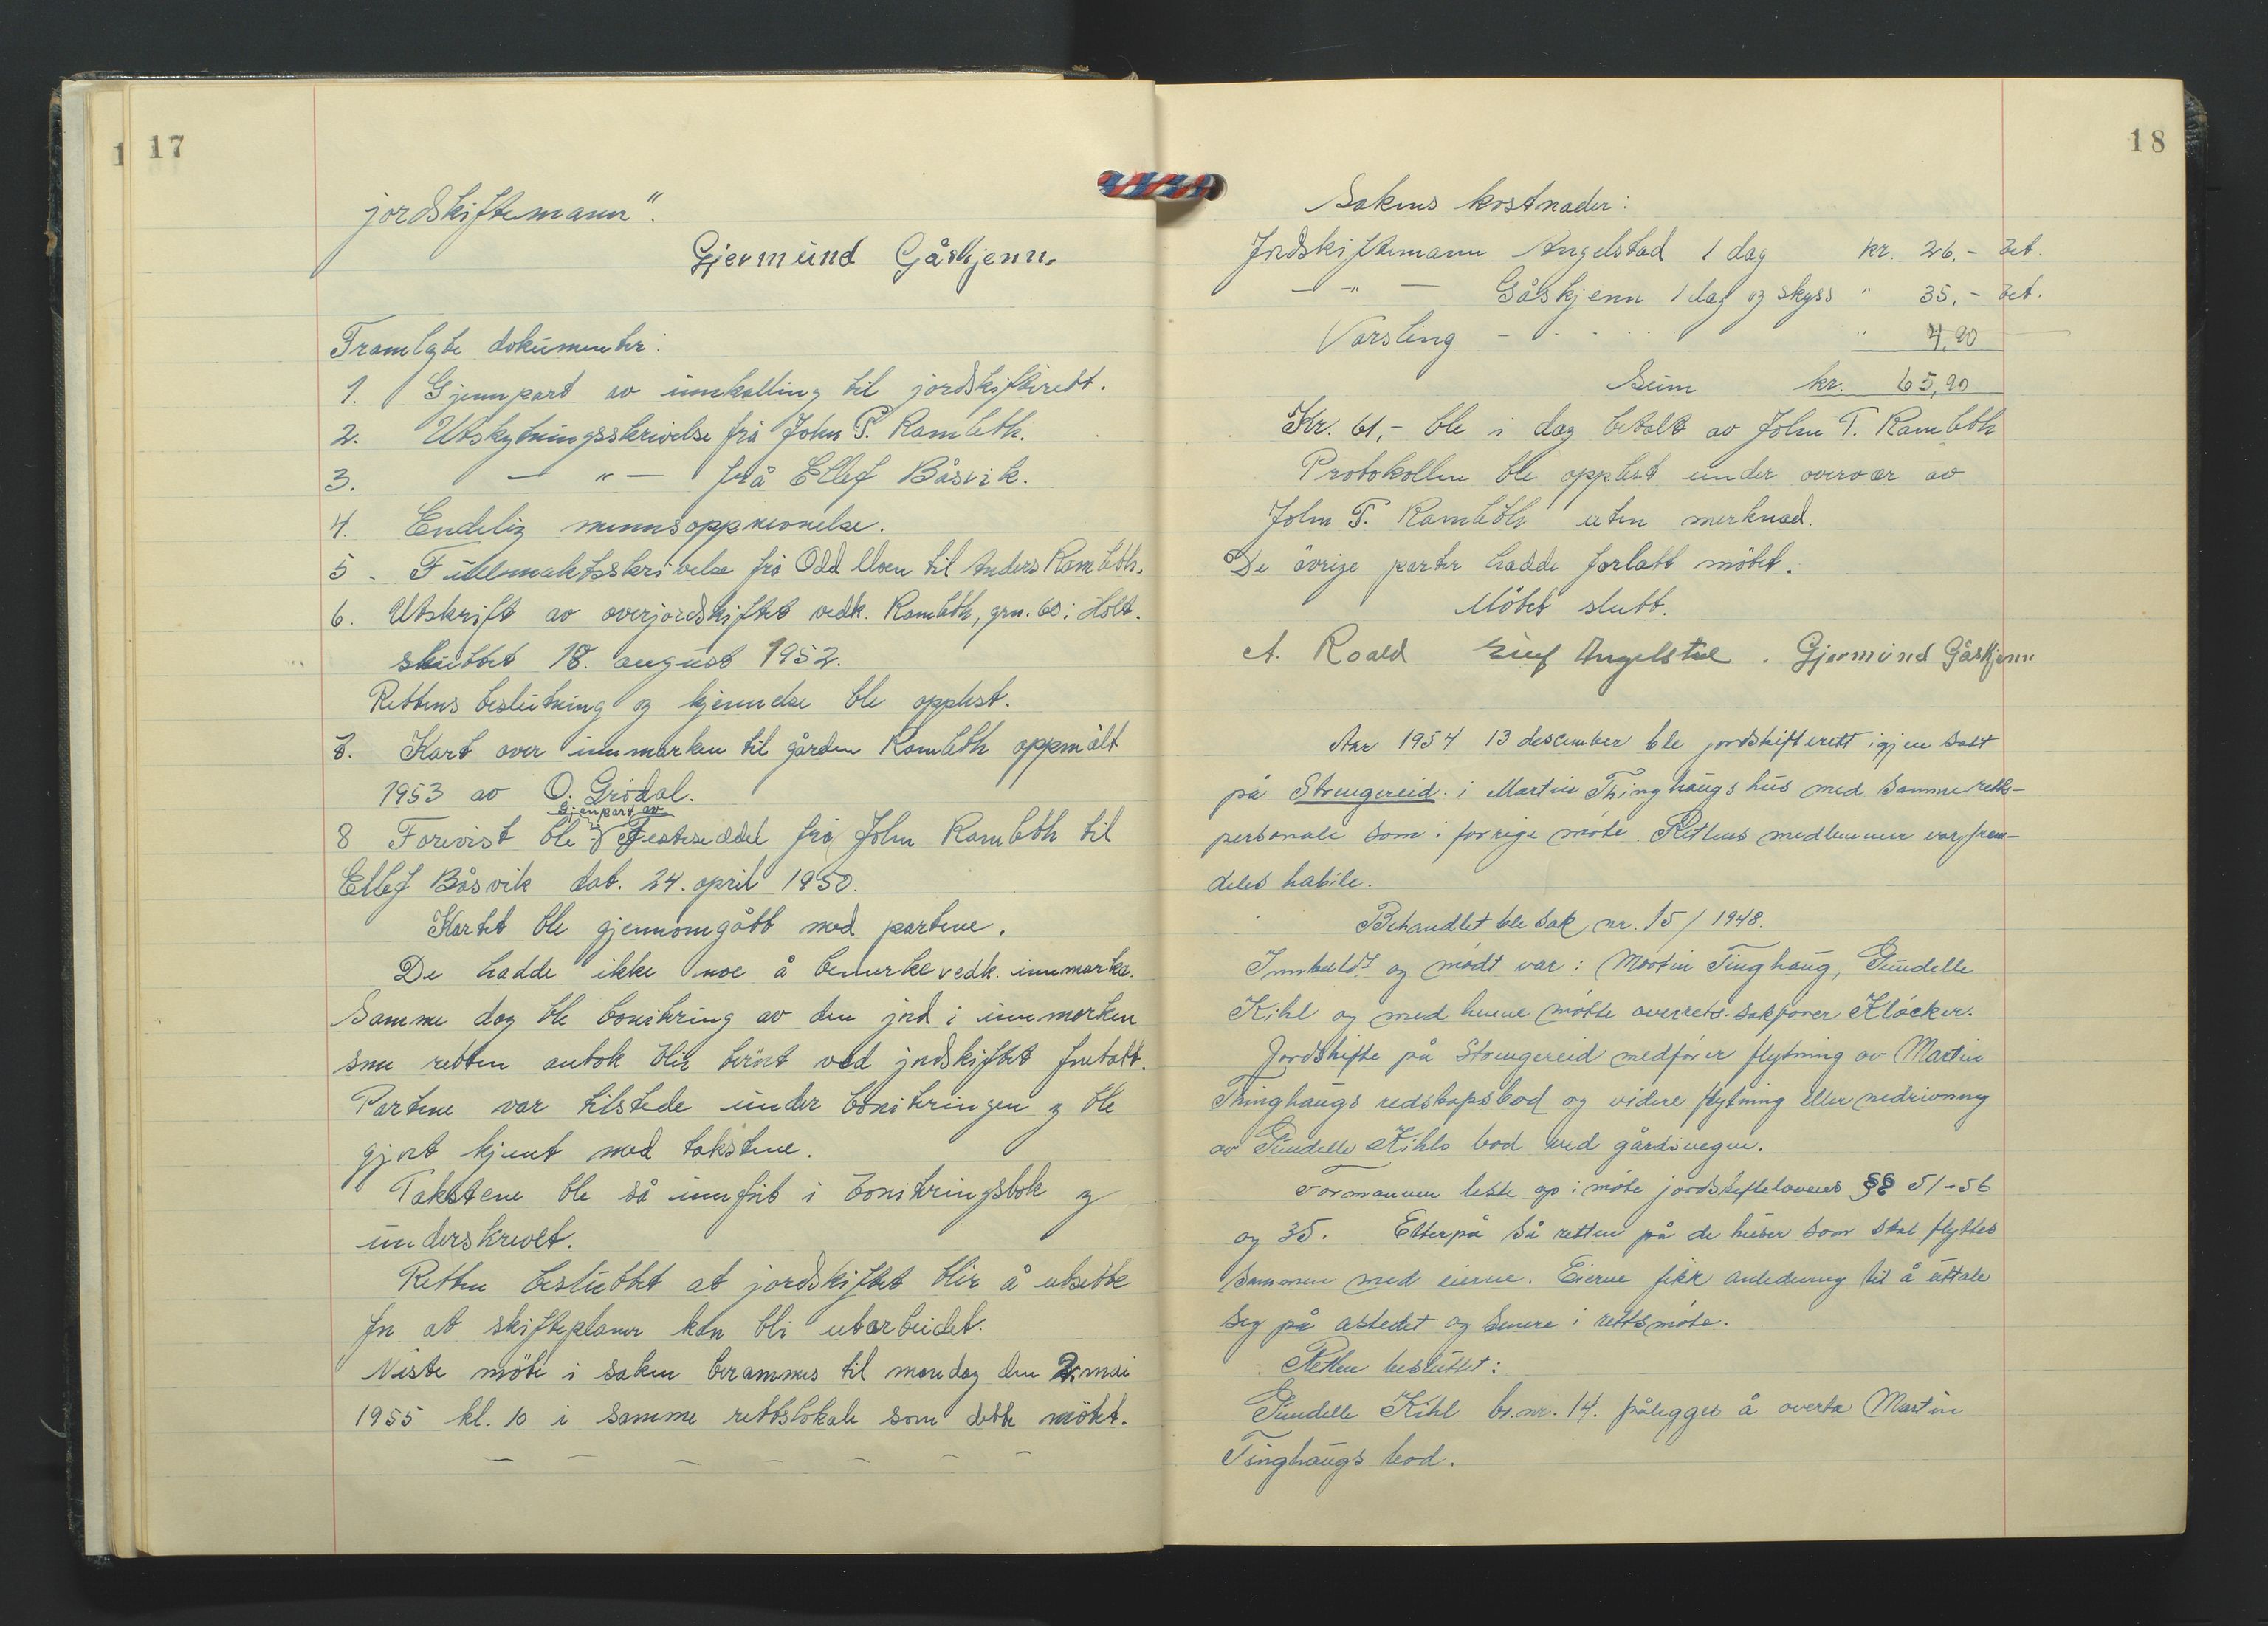 17
jordskiftemann".
Gjermund Gåskjenn.
Framlagte dokumenter:
1. Gjennpart av innkalling til jordskifterett.
2. Utskytningsskrivelse frå John T. Ramleth.
3. — " — frå Ellef Båsvik.
4. Endelig mannsoppnevnelse.
5. Fullmaktsskrivelse frå Odd Moen til Anders Ramleth.
6. Utskrift av overjordskiftet vedk. Ramleth, grn. 60 i Holt.
sluttet 18. august 1952.
Rettens beslutning og kjennelse ble opplest.
7. Kart over innmarken til gården Ramleth oppmålt
1953 av O. Grödal.
Gjenpart av
8 Forevist ble Festeseddel frå John Ramleth til
Ellef Båsvik dat. 24. april 1950.
Kartet ble gjennomgått med partene.
De hadde ikke noe å bemerke vedk. innmarka.
Samme dag ble bonitering av den jord i innmarken
som retten antok blir berört ved jordskiftet foretatt.
Partene var tilstede under boniteringen og ble
gjort kjent med takstene.
Takstene ble så innfört i boniteringsbok og
underskrevet.
Retten besluttet at jordskiftet blir å utsette
for at skifteplaner kan bli utarbeidet.
Neste möte i saken berammes til mandag den 2. mai
1955 kl. 10 i samme rettslokale som dette mötet.
— — — — — — —
18
Sakens kostnader:
Jordskiftemann Angelstad 1 dag kr. 26,- bet.
— " — Gåskjenn 1 dag og skyss " 35,- bet.
Varsling - - - - " 4,90
Sum kr. 65,90
Kr. 61,- ble i dag betalt av John T. Ramleth
Protokollen ble opplest under overvær av
John T. Ramleth uten merknad.
De övrige parter hadde forlatt mötet.
Mötet slutt.
A. Roald Angelstad. Gjermund Gåskjenn
Aar 1954 13 descember ble jordskifterett igjen satt
på Strengereid i Martin Thinghaugs hus med samme retts-
personale som i forrige möte. Rettens medlemmer var frem-
deles habile.
Behandlet ble sak nr. 15/1948.
Innkaldt og mödt var: Martin Tinghaug, Gundelle
Kihl og med henne mötte overrets.sakförer Klöcker.
Jordskifte på Strengereid medförer flytning av Martin
Thinghaugs redskapsbod og videre flytning eller nedrivning
av Gundelle Kihls bod ved gårdsvegen.
Formannen leste op i möte jordskiftelovens §§ 51-56
og 35. Etterpå så retten på de huser som skal flyttes
sammen med eierne. Eierne fikk anledning til å uttale
seg på åstedet og senere i rettsmöte.
Retten besluttet:
Gundelle Kihl br.nr. 14. pålegges å overta Martin
Tinghaugs bod.